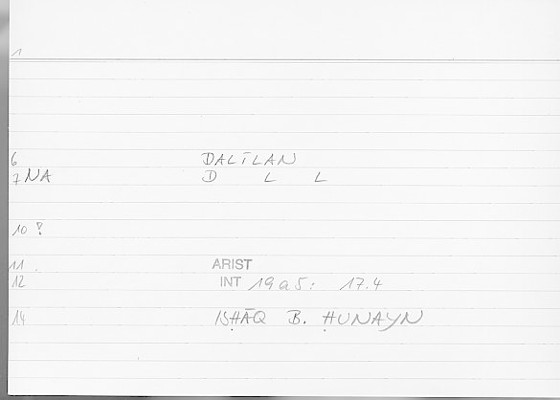 1
6 DALĪLAN
7 NA D L L
10 ?
11 ARIST
12 INT 19a5: 17.4
14 ISḤĀQ B. ḤUNAYN